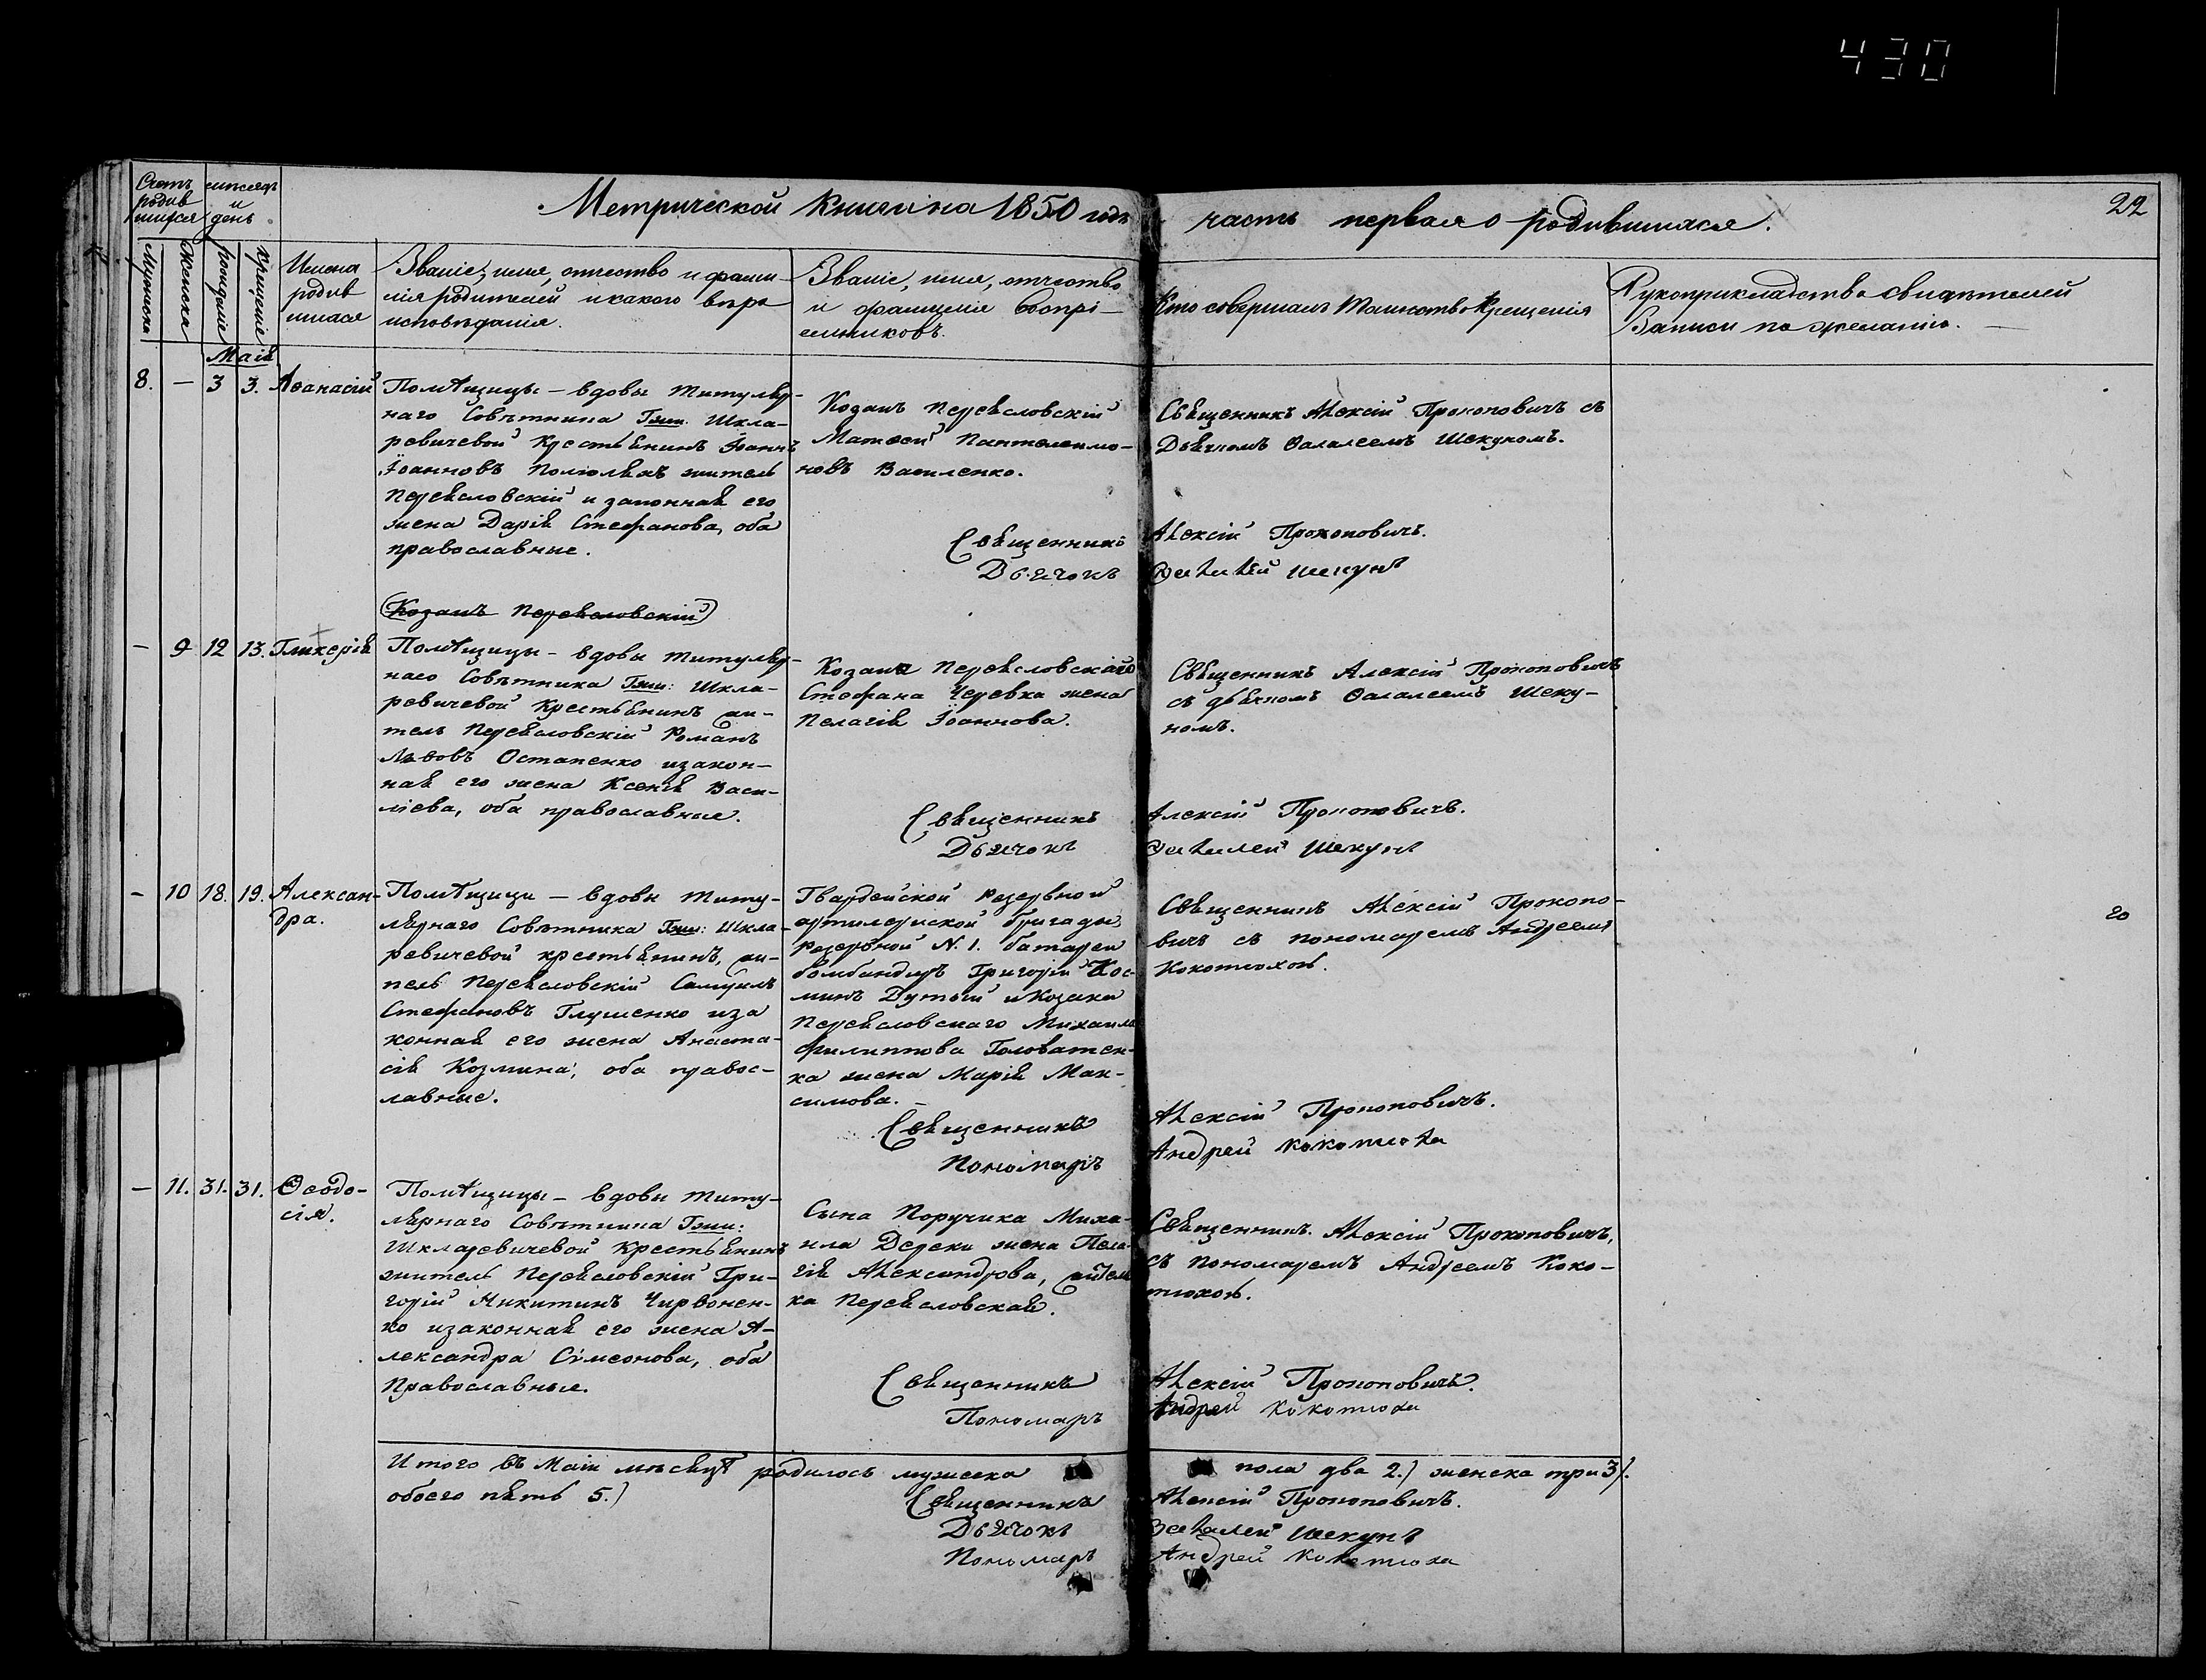 430
22
Счетъ родив шихся
мѣсяцъ и день
Метрической Книги на 1850 годъ часть первая о родившихся.
Мужеска
Женска
рожденіе
крещеніе
Имена
родив
шихся
Званіе, имя, отчество и фами-
лія родителей и какого вѣро
исповѣданія.
Званіе, имя, отчество
и фамилія воспрі-
емниковъ.
Кто совершалъ Таинство Крещенія
Рукоприкладство свидѣтелей
Записи по желанію.
Маія
8. — 3 3. Аѳанасій
Помѣщицы — вдовы титуляр-
наго Совѣтника Гжи Шкла-
ревичевой Крестьянинъ Іоаннъ
Іоанновъ житель
Переясловскій и законная его
жена Дарія Стефанова, оба
православные.
Козакъ Переясловскій
Матѳей Пантелеимо-
новъ Василенко.
Священникъ Алексій Прокоповичъ съ
Дьячкомъ Ѳалалеемъ Шекуномъ.
Священникъ Алексій Прокоповичъ.
Дьячокъ Ѳалалей Шекунъ
(Козакъ Переясловскій)
— 9 12 13. Гликерія
Помѣщицы — вдовы титуляр-
наго Совѣтника Гжи: Шкла-
ревичевой Крестьянинъ жи-
тель Переясловскій Романъ
Львовъ Остапенко и закон-
ная его жена Ксенія Васи-
ліева, оба православные.
Козака Переясловскаго
Стефана Черевка жена
Пелагія Іоаннова.
Священникъ Алексій Прокоповичъ
съ дьячкомъ Ѳалалеемъ Шеку-
номъ.
Священникъ Алексій Прокоповичъ.
Дьячокъ Ѳалалей Шекунъ
— 10 18. 19. Алексан-
дра.
Помѣщицы — вдовы титу-
лярнаго Совѣтника Гжи: Шкла-
ревичевой крестьянинъ, жи-
тель Переясловскій Самуилъ
Стефановъ Глушенко и за
конная его жена Анаста-
сія Козмина, оба правос-
лавные.
Гвардейской резервной
артилерійской бригады,
резервной N. 1. батареи
бомбандиръ Григорій Кос-
минъ Дутый и Козака
Переясловскаго Михаила
Филиппова Головатен-
ка жена Марія Мак-
симова. —
Священникъ Алексій Прокопо-
вичъ съ пономаремъ Андреемъ
Кокотюхою.
20
Священникъ Алексій Прокоповичъ.
Пономарь Андрей Кокотюха
— 11. 31. 31. Ѳеодо-
сія.
Помѣщицы — вдовы титу-
лярнаго Совѣтника Гжи:
Шкларевичевой Крестьянинъ
житель Переясловскій Гри-
горій Никитинъ Чирвонен-
ко и законная его жена А-
лександра Сѵмеонова, оба
Православные.
Сына Поручика Миха-
ила Дереки жена Пела-
гія Александрова, жител
ка Переясловская.
Священникъ. Алексій Прокоповичъ,
съ пономаремъ Андреемъ Коко-
тюхою.
Священникъ Алексій Прокоповичъ.
Пономарь Андрей Кокотюха
Итого въ Маіи мѣсяцѣ родилось мужеска пола два 2.) женска три 3).
обоего пять 5.)
Священникъ Алексій Прокоповичъ.
Дьячокъ Ѳалалей Шекунъ
Пономарь Андрей Кокотюха